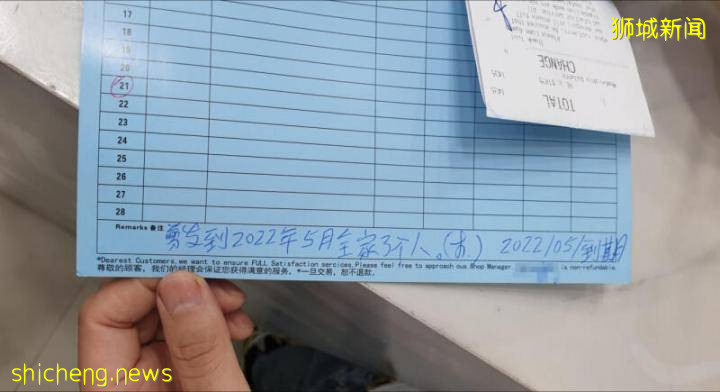 狮城新闻
17
18
19
20
21
22
23
24
25
26
27
28
CHANGE
TOTAL
Remarks 备注 剪发到2022年5月全家3个人。 2022/05/到期
*Dearest Customers,we want to ensure FULL Satisfaction sercices.Please feel free to approach our Shop Manager is non-refundable.
尊敬的顾客，我们的经理会保证您获得满意的服务。*一旦交易，恕不退款。
shicheng.news